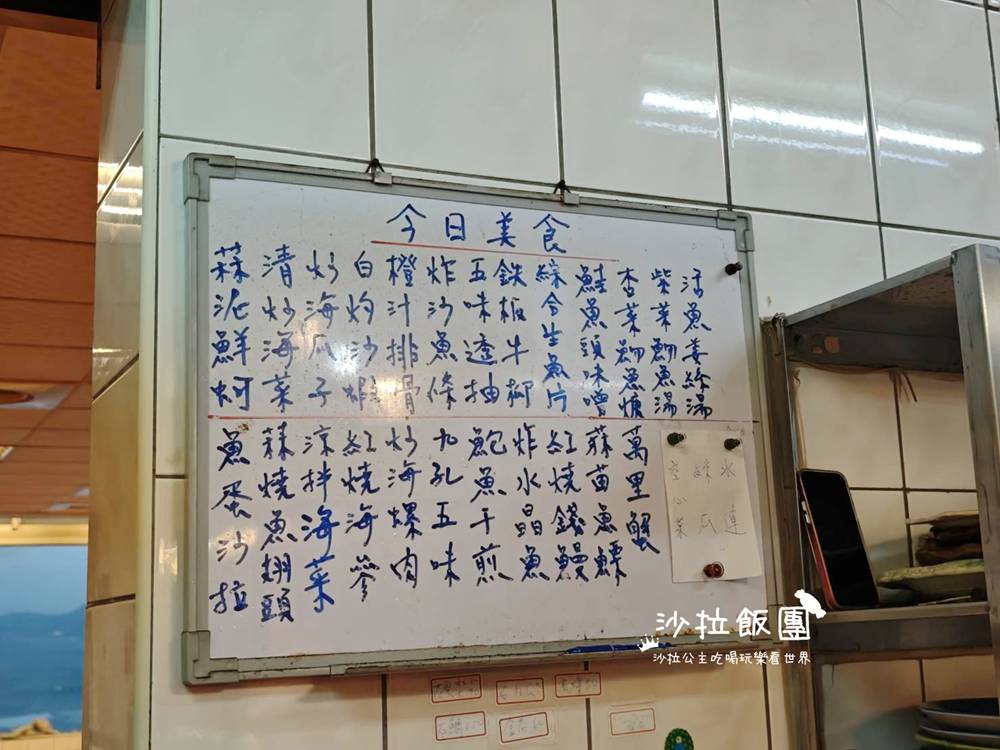 今日美食
活魚姜絲湯
紫菜魩魚湯
杏菜魩魚焿
鮭魚頭味噌
綜合生魚片
鉄板牛柳
五味透抽
炸沙魚條
橙汁排骨
白灼沙蝦
炒海瓜子
清炒海菜
蒜泥鮮蚵
萬里蟹
蒜苗魚鰾
紅燒錢鰻
炸水晶魚
鮑魚干煎
九孔五味
炒海螺肉
紅燒海參
涼拌海菜
蒜燒魚翅頭
魚蛋沙拉
水蓮
絲瓜
空心菜
沙拉飯團
沙拉公主吃喝玩樂看世界